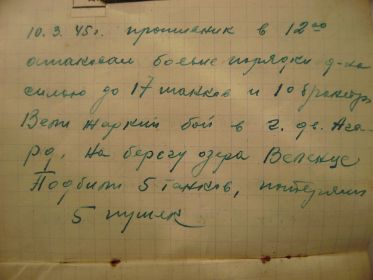 10.3.45г. противник в 12⁰⁰
атаковал боевые порядки д-на
силою до 17 танков и 10 бронетр.
Вели жаркий бой в г. дв. Ага-
рд, на берегу озера Веленце
Подбили 5 танков, потеряли
5 пушек